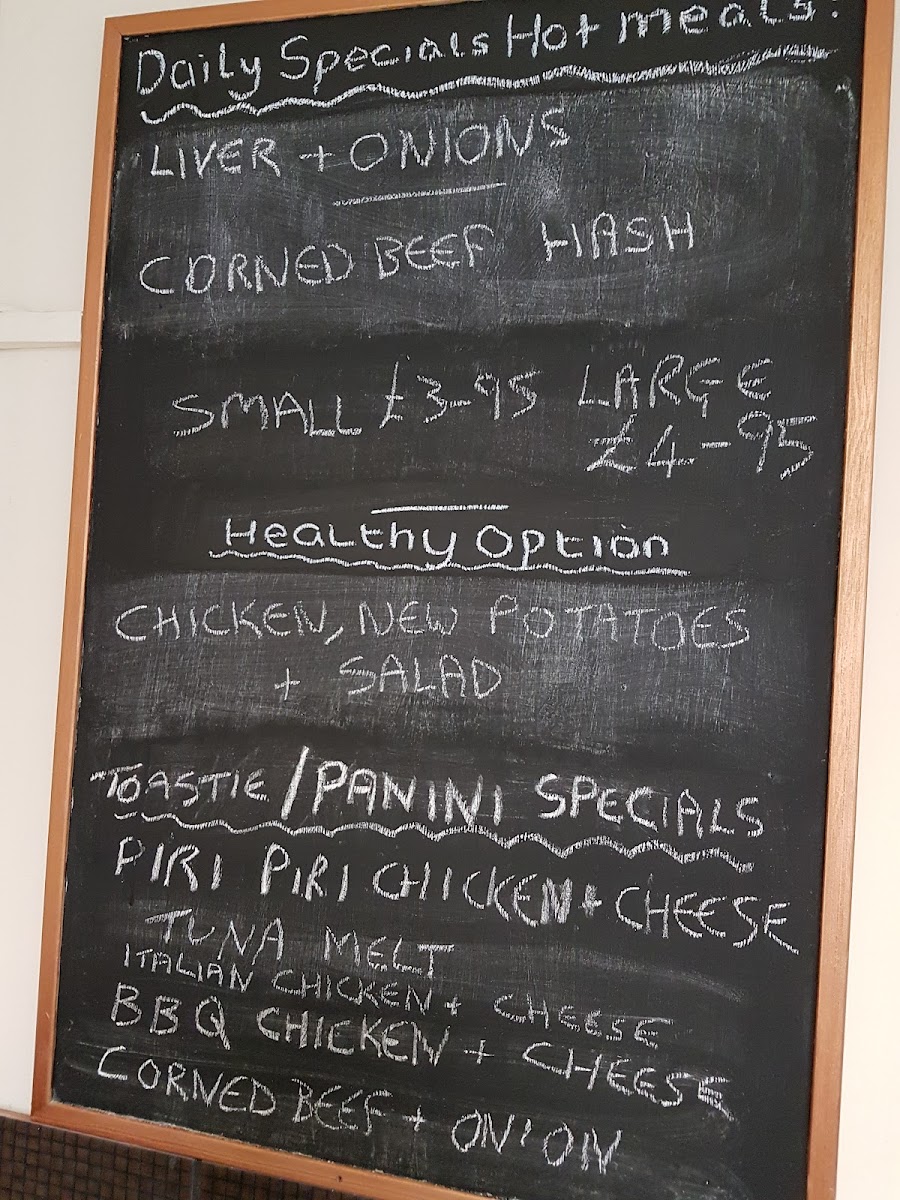 Daily Specials Hot meals:
LIVER + ONIONS
CORNED BEEF HASH
SMALL £3-95 LARGE
£4-95
Healthy Option
CHICKEN, NEW POTATOES
+ SALAD
TOASTIE/PANINI SPECIALS
PIRI PIRI CHICKEN + CHEESE
TUNA MELT
ITALIAN CHICKEN + CHEESE
BBQ CHICKEN + CHEESE
CORNED BEEF + ONION